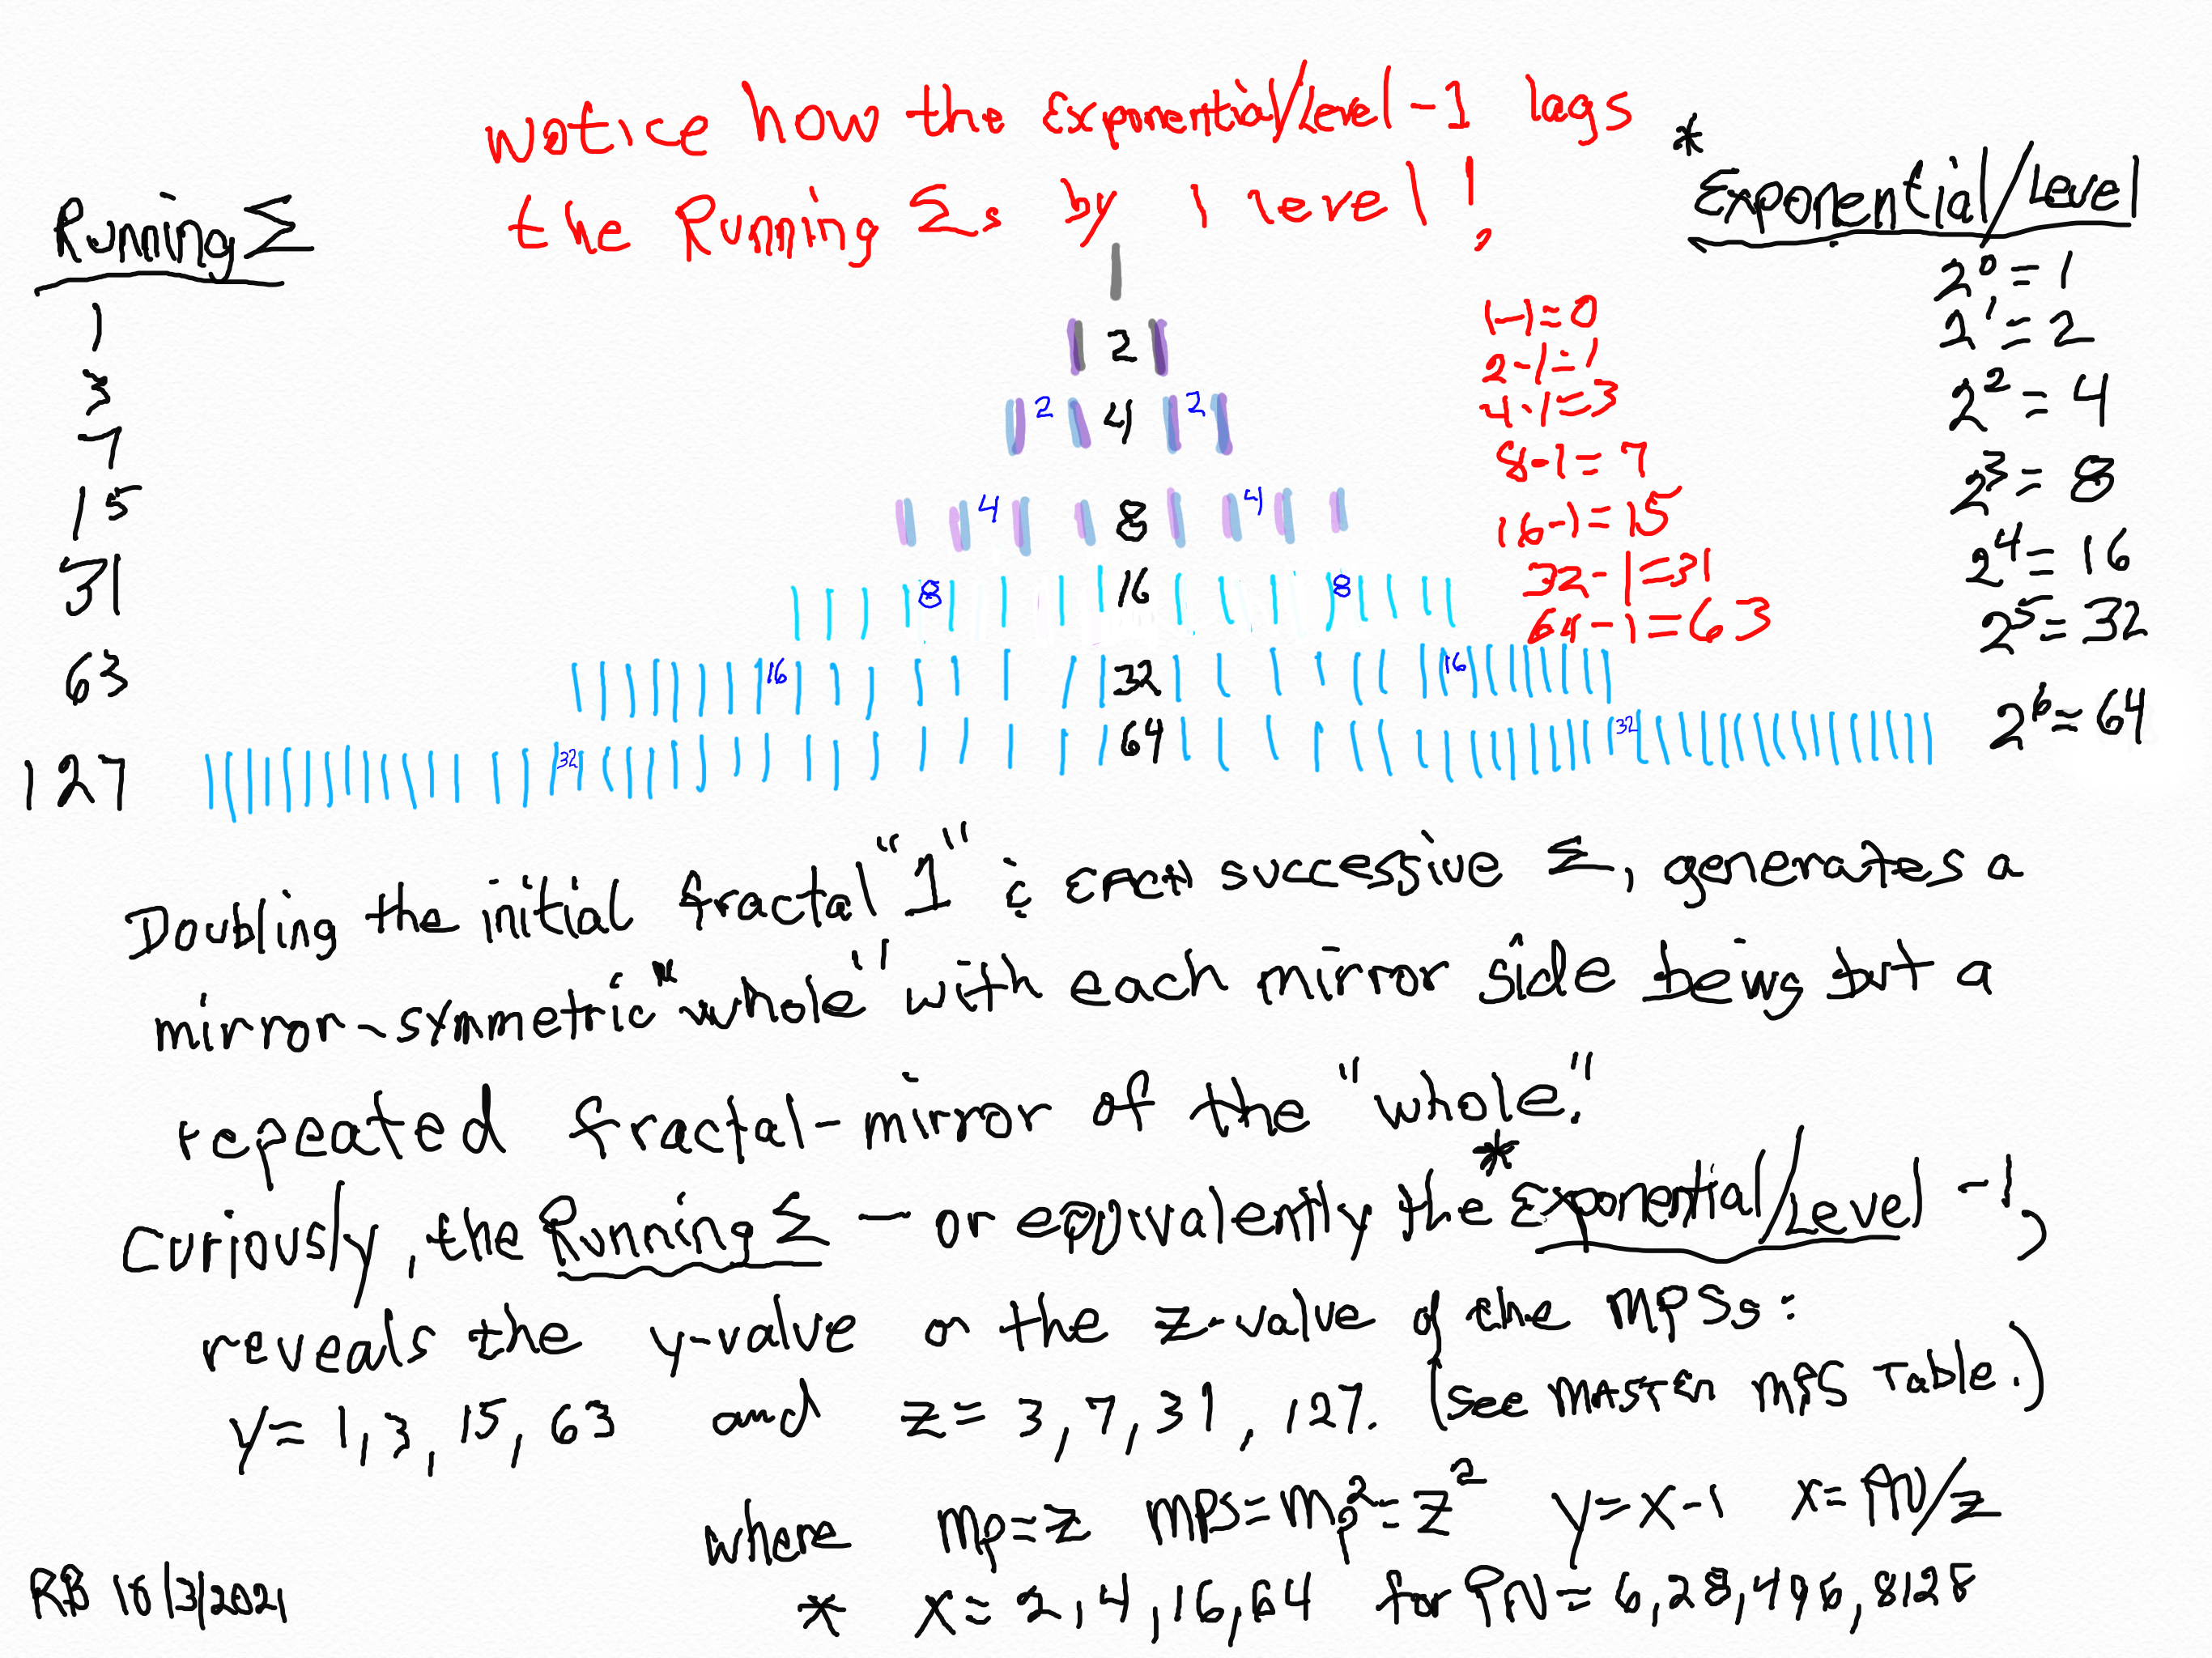 Notice how the Exponential/Level-1 lags
the Running Σs by 1 level!
*
Running Σ
Exponential/Level
1
3
7
15
31
63
127
1
2
2 4 2
4 8 4
8 16 8
16 32 16
32 64 32
1-1=0
2-1=1
4-1=3
8-1=7
16-1=15
32-1=31
64-1=63
2⁰=1
2¹=2
2²=4
2³=8
2⁴=16
2⁵=32
2⁶=64
Doubling the initial fractal "1" & EACH successive Σ, generates a
mirror-symmetric "whole" with each mirror side being but a
repeated fractal-mirror of the "whole."
Curiously, the Running Σ — or equivalently the *Exponential/Level -1,
reveals the y-value or the z-value of the MPSs:
y= 1,3,15,63 and z= 3,7,31,127. (see MASTER MPS Table.)
where Mp=z MPS=Mp²=z² y=x-1 x=PN/z
* x=2,4,16,64 for PN=6,28,496,8128
RB 10/3/2021